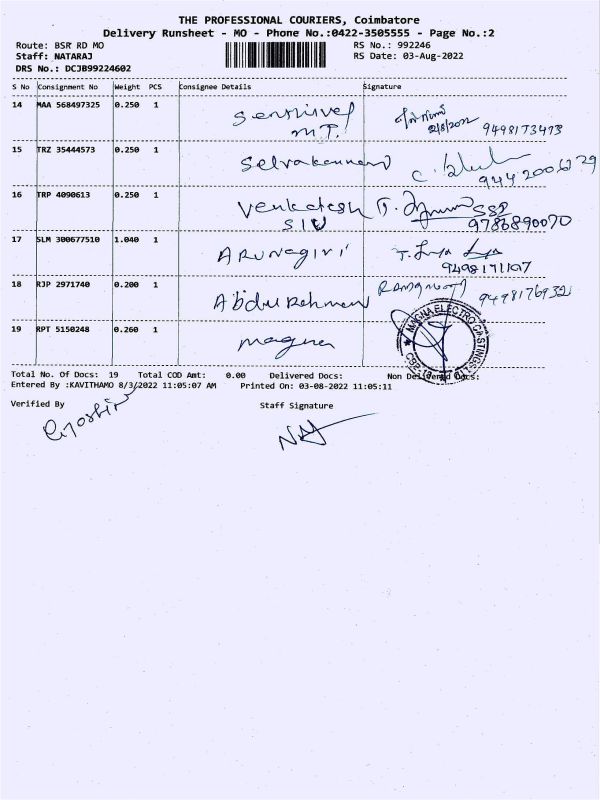 THE PROFESSIONAL COURIERS, Coimbatore
Delivery Runsheet - MO - Phone No.:0422-3505555 - Page No.:2
Route: BSR RD MO
RS No.: 992246
Staff: NATARAJ
RS Date: 03-Aug-2022
DRS No.: DCJB99224602
S No Consignment No Weight PCS Consignee Details Signature
14 MAA 568497325 0.250 1
M.T. 2/8/2022 9498173473
15 TRZ 35444573 0.250 1
9442006229
16 TRP 4090613 0.250 1 Venkatesh
SIV SSP 9786890070
17 SLM 300677510 1.040 1 Arunagiri
9498171107
18 RJP 2971740 0.200 1 Abdul Rehman
19 RPT 5150248 0.260 1 magna
MAGNA ELECTRO CASTINGS
Total No. Of Docs: 19 Total COD Amt: 0.00 Delivered Docs: Non Delivered Docs:
Entered By :KAVITHAMO 8/3/2022 11:05:07 AM Printed On: 03-08-2022 11:05:11
Verified By Staff Signature